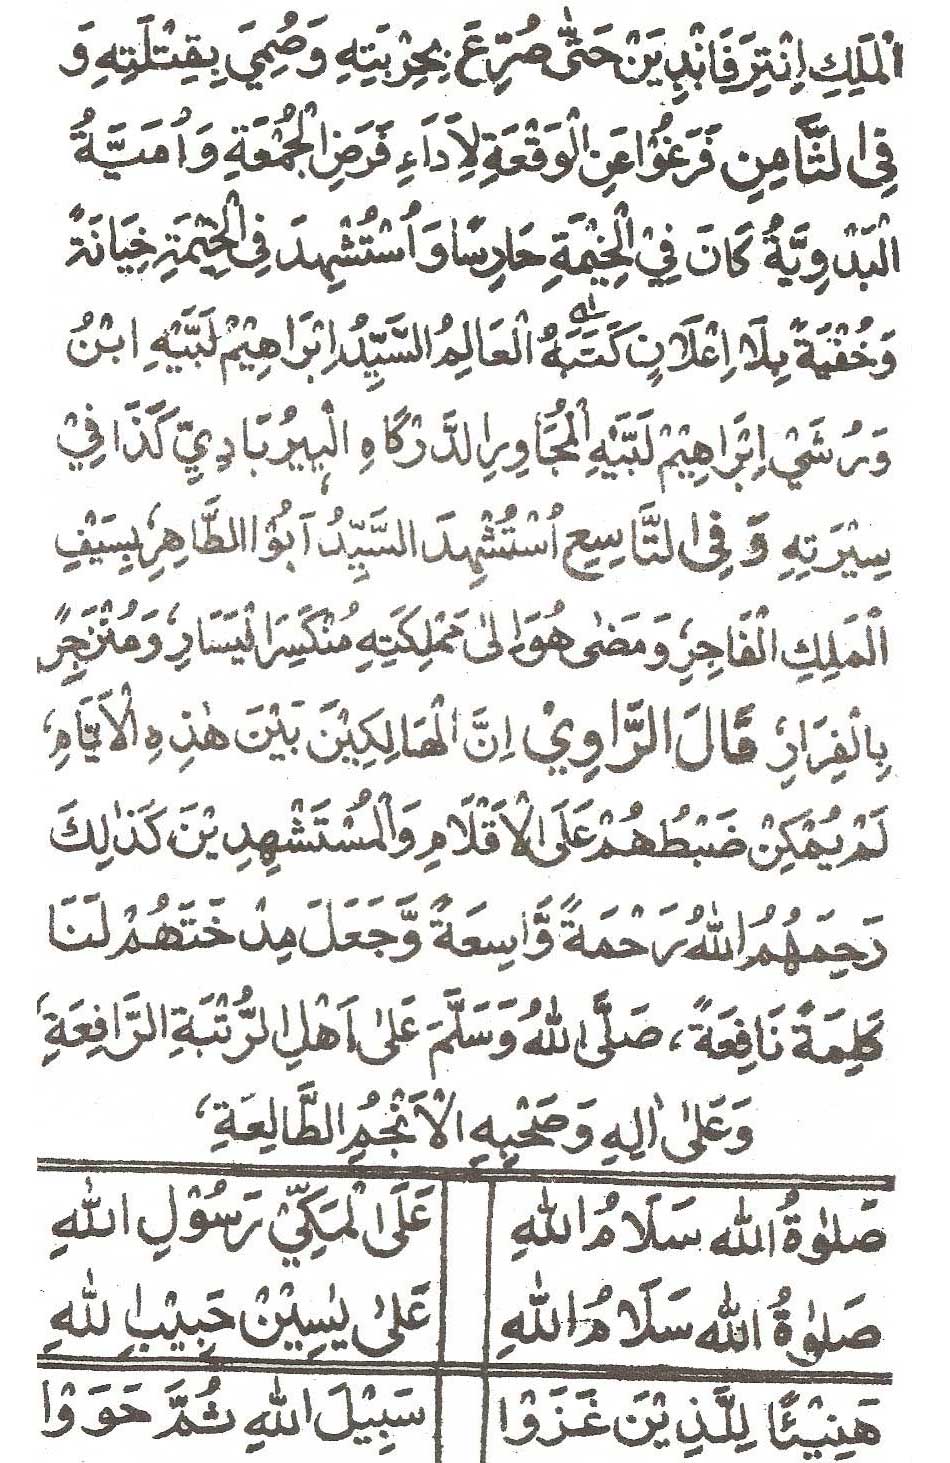 الْمَلِكِ اِنْتِرَفَانْدِيَنْ حَتّٰى صُرِّعَ بِحِرْبَتِهِ وَصُمِيَ بِقِتْلَتِهِ وَ
فِى الثَّامِنِ فَرَغُوْا عَنِ الْوَقْعَةِ لِاَدَاءِ فَرَضِ الْجُمُعَةِ وَاُمَيَّةُ
الْبَدْوِيَّةُ كَانَ فِيْ الْخِيْمَةِ حَارِسًا وَاُسْتُشْهِدَ فِى الْخِيْمَةِ خِيَانَةً
وَخُفْيَةً بِلَا اِعْلَانٍ كَتَبَهُ الْعَالِمُ السَّيِّدُ اِبْرَاهِيْمُ لَبَّيْهِ ابْنُ
وَرُشَيْ اِبْرَاهِيْمْ لَبَّيْهِ الْمُجَاوِرِ الدَّرْكَاهِ الْبِيرُبَادِيِّ كَذَا فِيْ
سِيْرَتِهِ وَفِى التَّاسِعِ اُسْتُشْهِدَ السَّيِّدُ اَبُوْا الطَّاهِرِ، بِسَيْفِ
الْمَلِكِ الْفَاجِرِ، وَمَضٰى هُوَ اِلٰى مَمْلِكَتِهِ مُنْكَسِرَ الْيَسَارِ، وَمُنْزَجِرً
بِالْفِرَارِ، قَالَ الرَّاوِيْ اِنَّ الْهَالِكِيْنَ بَيْنَ هٰذِهِ الْاَيَّامِ،
لَمْ يُمْكِنْ ضَبْطُهُمْ عَلَى الْاَقْلَامِ وَالْمُسْتَشْهِدِيْنَ كَذٰلِكَ
رَحِمَهُمُ اللهُ رَحْمَةً وَّاسِعَةً وَّجَعَلَ مِدْحَتَهُمْ لَنَا
كَلِمَةً نَافِعَةً، صَلَّى اللهُ وَسَلَّمَ عَلٰى اَهْلِ الرُّتْبَةِ الرَّافِعَةِ،
وَعَلٰى اٰلِهِ وَصَحْبِهِ الْاَنْجُمِ الطَّالِعَةِ،
صَلٰوةُ اللهِ سَلَامُ اللهِ عَلَى الْمَكِّيْ رَسُوْلِ اللهِ
صَلٰوةُ اللهِ سَلَامُ اللهِ عَلٰى يٰسِيْنْ حَبِيْبِ اللهِ
هَنِيْئًا لِلَّذِيْنَ غَزَوْا سَبِيْلَ اللهِ ثُمَّ حَوَوْا